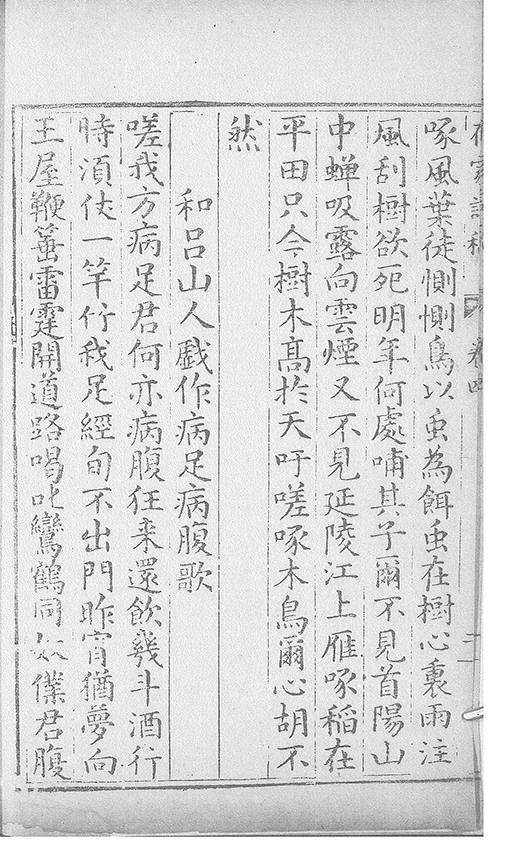 啄風葉徒惻惻鳥以虫為餌虫在樹心裏雨注
風刮樹欲死明年何處哺其子爾不見首陽山
中蟬吸露向雲煙又不見延陵江上雁啄稻在
平田只今樹木高於天吁嗟啄木鳥爾心胡不
然
和呂山人戲作病足病腹歌
嗟我方病足君何亦病腹狂来還飲幾斗酒行
時須仗一竿竹我足經旬不出門昨宵猶夢向
王屋鞭箠雷霆開道路喝叱鸞鶴同奴僕君腹